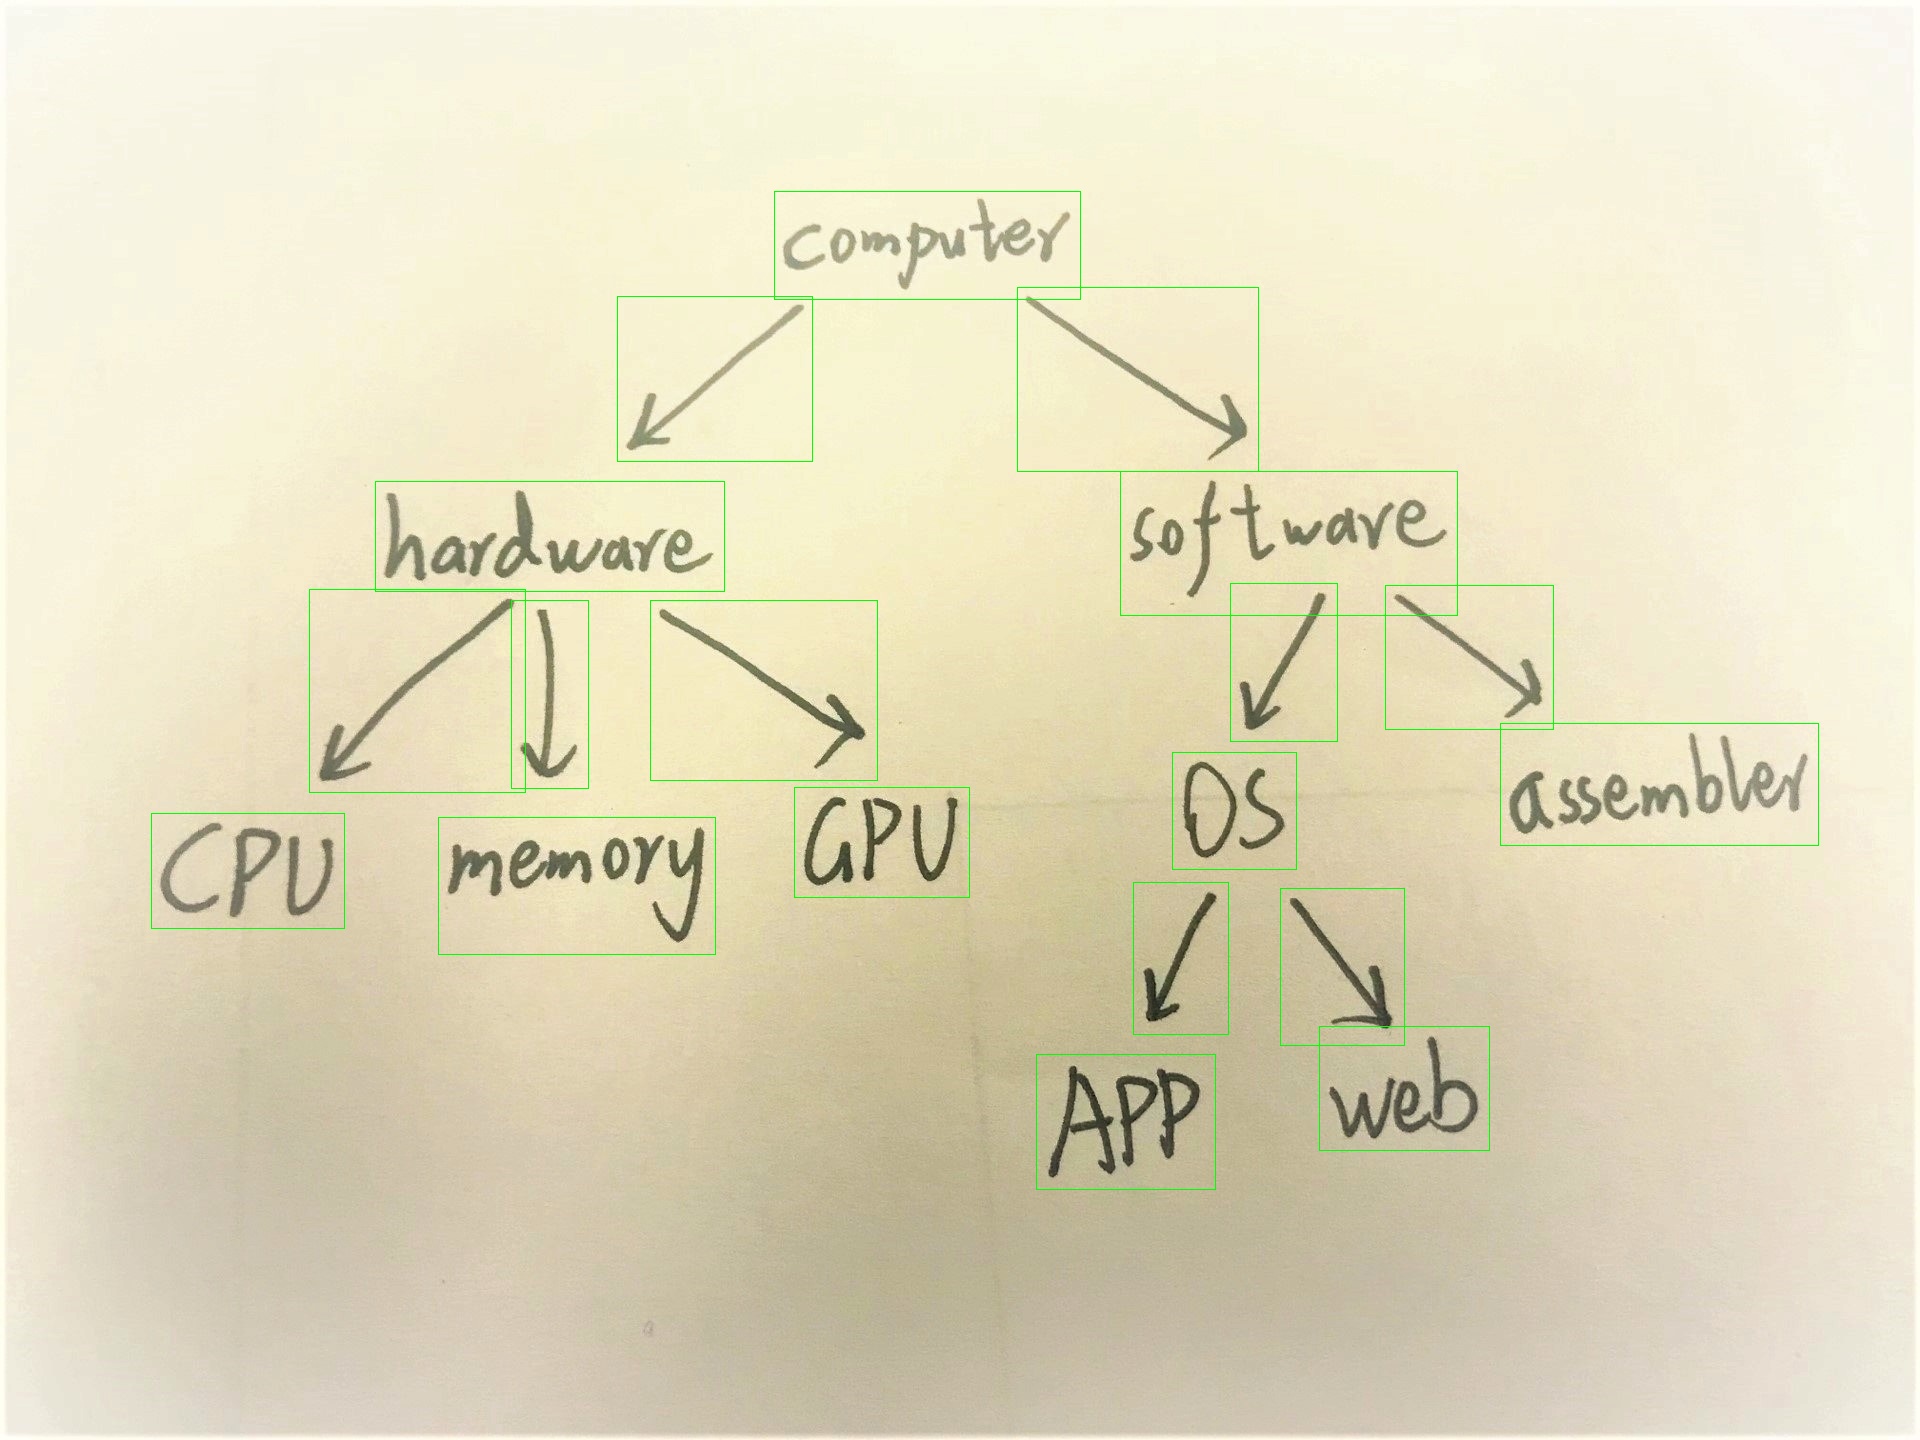 computer
hardware software
CPU memory GPU OS assembler
APP web